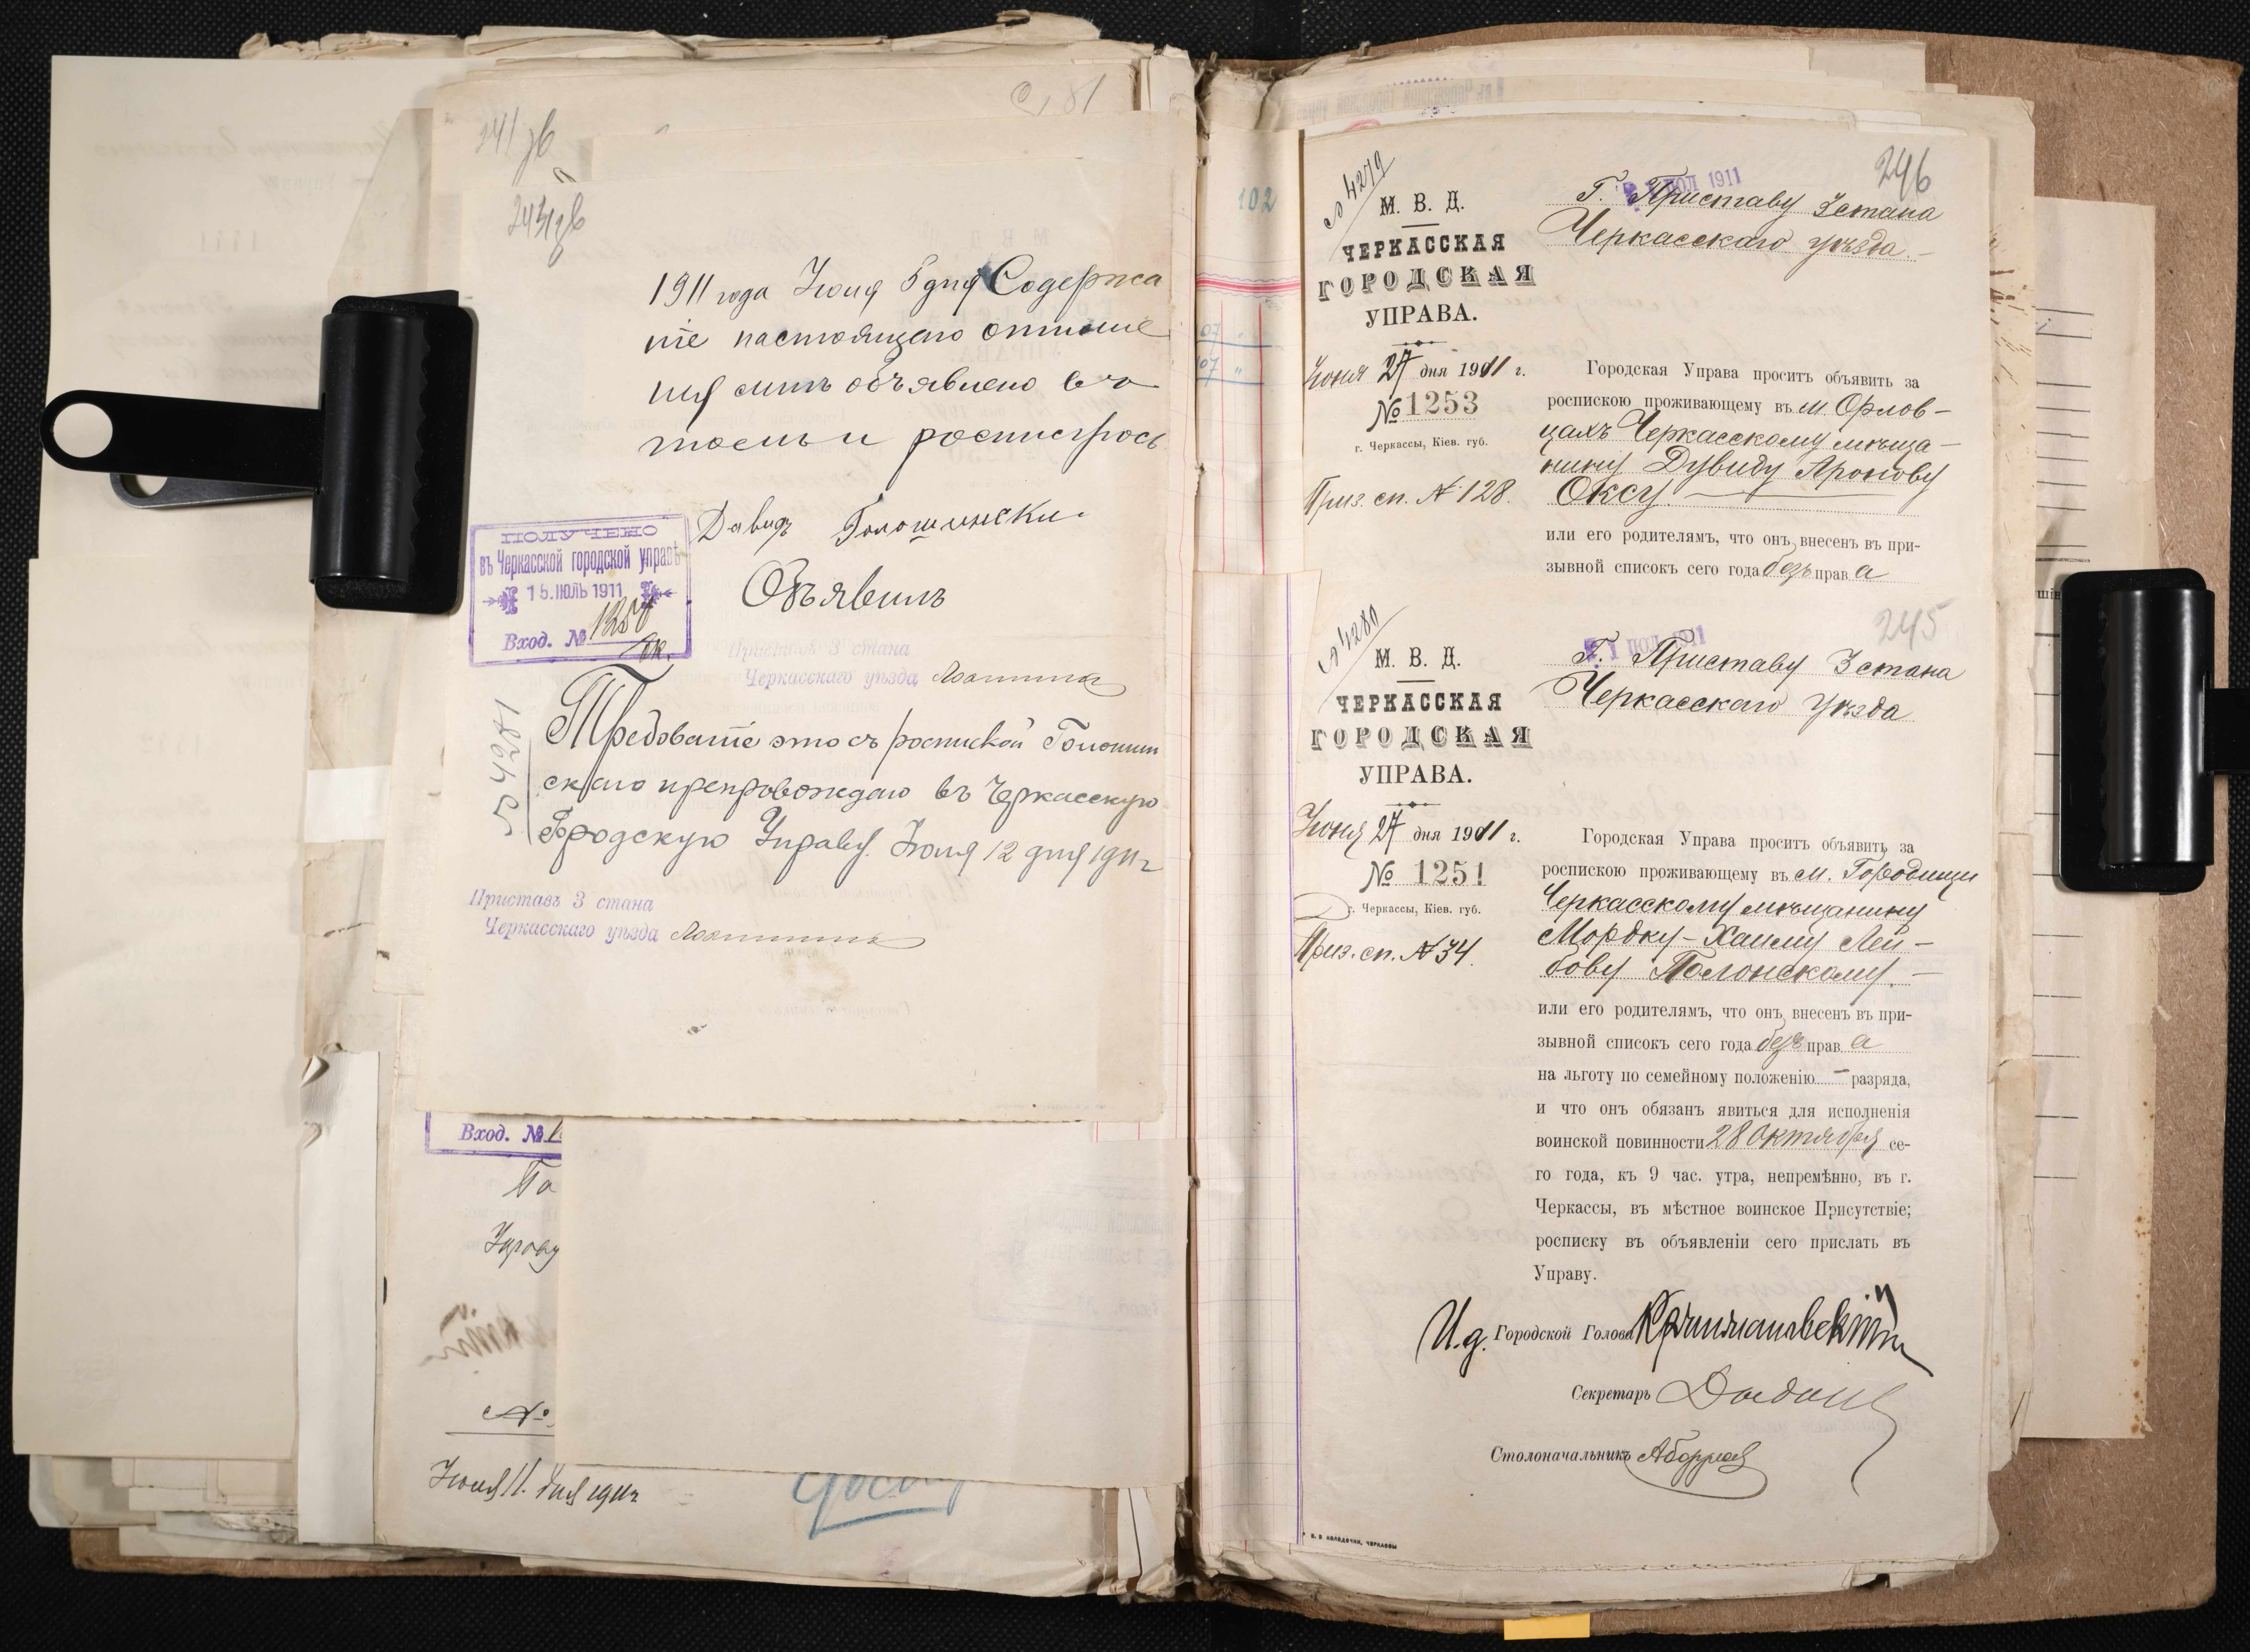 241 зв
243 зв
1911 года Июля 5 дня Содержа
ніе настоящаго отноше
нія мнѣ объявлено в чо
томъ и росписуюсь
Давидъ Голошински.
ПОЛУЧЕНО
въ Черкасской городской управѣ
15.ІЮЛЬ 1911
Вход. №
Объявилъ
Приставъ 3 стана
Черкасскаго уѣзда
№ 4281
Требованіе это съ роспиской Голошин
скаго препровождаю въ Черкасскую
Городскую Управу. Июля 12 дня 1911 г
Приставъ 3 стана
Черкасскаго уѣзда
Вход. №
Июля 11. дня 1911 г
102
№ 4279
М. В. Д.
ЧЕРКАССКАЯ
ГОРОДСКАЯ
УПРАВА.
Июня 27 дня 1911 г.
№ 1253
г. Черкассы, Кіев. губ.
Приз. сп. № 128.
246
1911
Г. Приставу 3 стана
Черкасскаго уѣзда.
Городская Управа проситъ объявить за
роспискою проживающему въ м. Орлов-
цахъ Черкасскому мѣща-
нину Дувиду Аронову
Оксу.
или его родителямъ, что онъ внесенъ въ при-
зывной списокъ сего года безъ права
№ 4280
М. В. Д.
ЧЕРКАССКАЯ
ГОРОДСКАЯ
УПРАВА.
Июня 27 дня 1911 г.
№ 1251
г. Черкассы, Кіев. губ.
Приз. сп. № 34.
245
Г. Приставу 3 стана
Черкасскаго уѣзда
Городская Управа проситъ объявить за
роспискою проживающему въ м. Городищи
Черкасскому мѣщанину
Мордку-Хаиму Лей-
бову Полонскому.-
или его родителямъ, что онъ внесенъ въ при-
зывной списокъ сего года безъ права
на льготу по семейному положенію - разряда,
и что онъ обязанъ явиться для исполненія
воинской повинности 28 октября се-
го года, къ 9 час. утра, непремѣнно, въ г.
Черкассы, въ мѣстное воинское Присутствіе;
росписку въ объявленіи сего прислать въ
Управу.
И.д. Городской Голова
Секретарь
Столоначальникъ